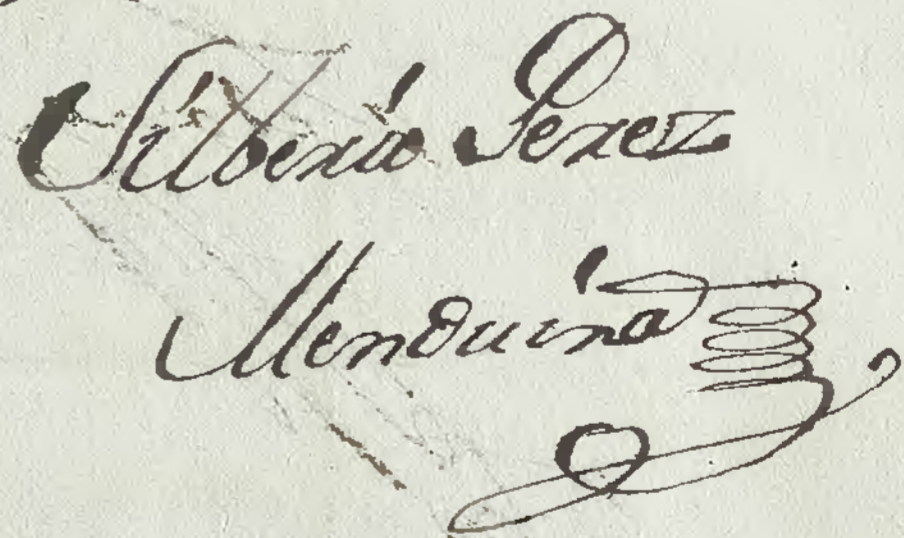 Silberio Perez
Menduina